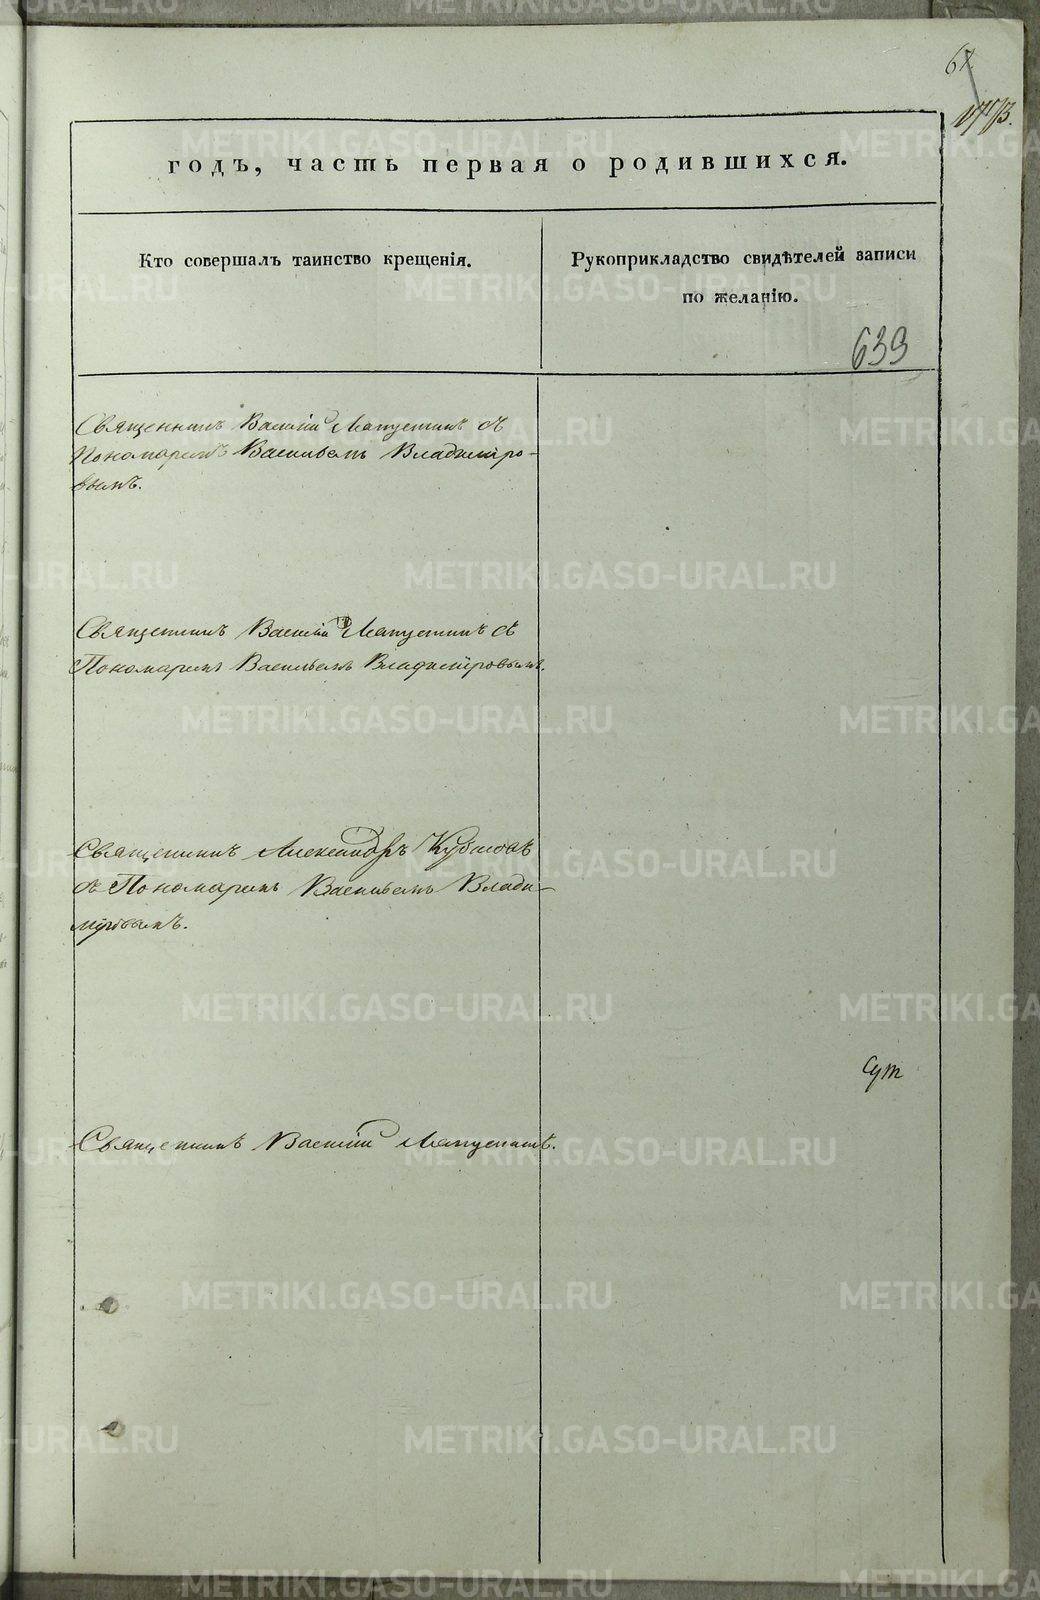 годъ, часть первая о родившихся.
Кто совершалъ таинство крещенія.
Рукоприкладство свидѣтелей записи
по желанію.
639
Священникъ Василій Мапустинъ съ
Пономаремъ Васильемъ Владиміро-
вымъ.
Священникъ Василій Мапустинъ съ
Пономаремъ Васильемъ Владиміровымъ.
Священникъ Александръ
съ Пономаремъ Васильемъ Влади-
міровымъ.
Священникъ Василій Мапустинъ.
METRIKI.GASO-URAL.RU